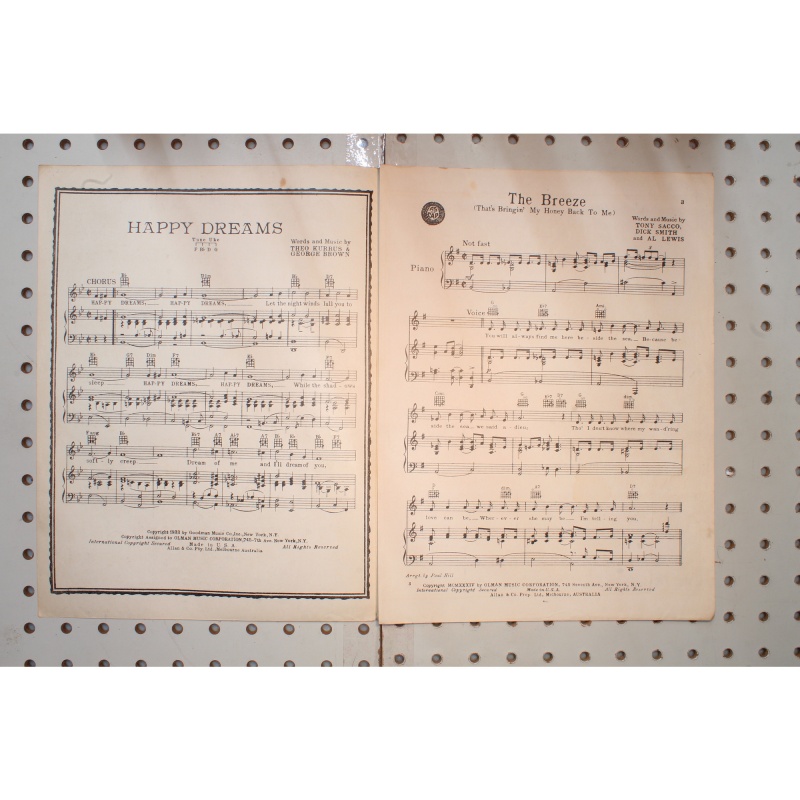 HAPPY DREAMS
Tune Uke
Words and Music by
THEO KURRUS &
GEORGE BROWN
CHORUS
HAP-PY DREAMS, HAP-PY DREAMS, Let the night winds lull you to
sleep HAP-PY DREAMS, HAP-PY DREAMS, While the shad-ows
soft-ly creep Dream of me and I'll dream of you,
Copyright by Goodman Music Co., Inc., New York, N.Y.
Copyright Assigned to OLMAN MUSIC CORPORATION, 745-7th Ave. New York, N.Y.
International Copyright Secured Made in U.S.A. All Rights Reserved
Allan & Co. Pty. Ltd., Melbourne Australia
The Breeze
(That's Bringin' My Honey Back To Me)
Words and Music by
TONY SACCO,
DICK SMITH
and AL LEWIS
Not fast
Piano
Voice
You will al-ways find me here be-side the sea, Be-cause be-
side the sea, we said a-dieu; Tho' I don't know where my wan-d'ring
love can be, Wher-ev-er she may be I'm tell-ing you,
Arrgt by
Copyright MCMXXXIV by OLMAN MUSIC CORPORATION, 745 Seventh Ave., New York, N.Y.
International Copyright Secured Made in U.S.A. All Rights Reserved
Allan & Co. Prop. Ltd., Melbourne, AUSTRALIA